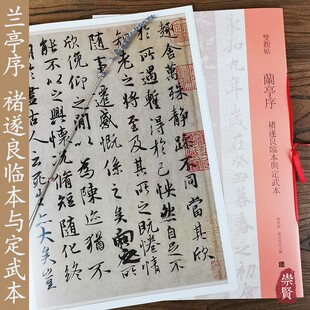 兰亭序 褚遂良临本与定武本
趣舍萬殊靜躁不同當其欣
於所遇暫得於己怏然自足
老之將至及其所之既惓情
隨事遷感慨係之矣向之
欣俛仰之間以為陳迹猶不
能不以之興懷況脩短隨化終
於盡古人云死生亦大矣豈
蘭亭序
褚遂良臨本與定武本
永和九年歲在癸丑暮春之初
崇賢